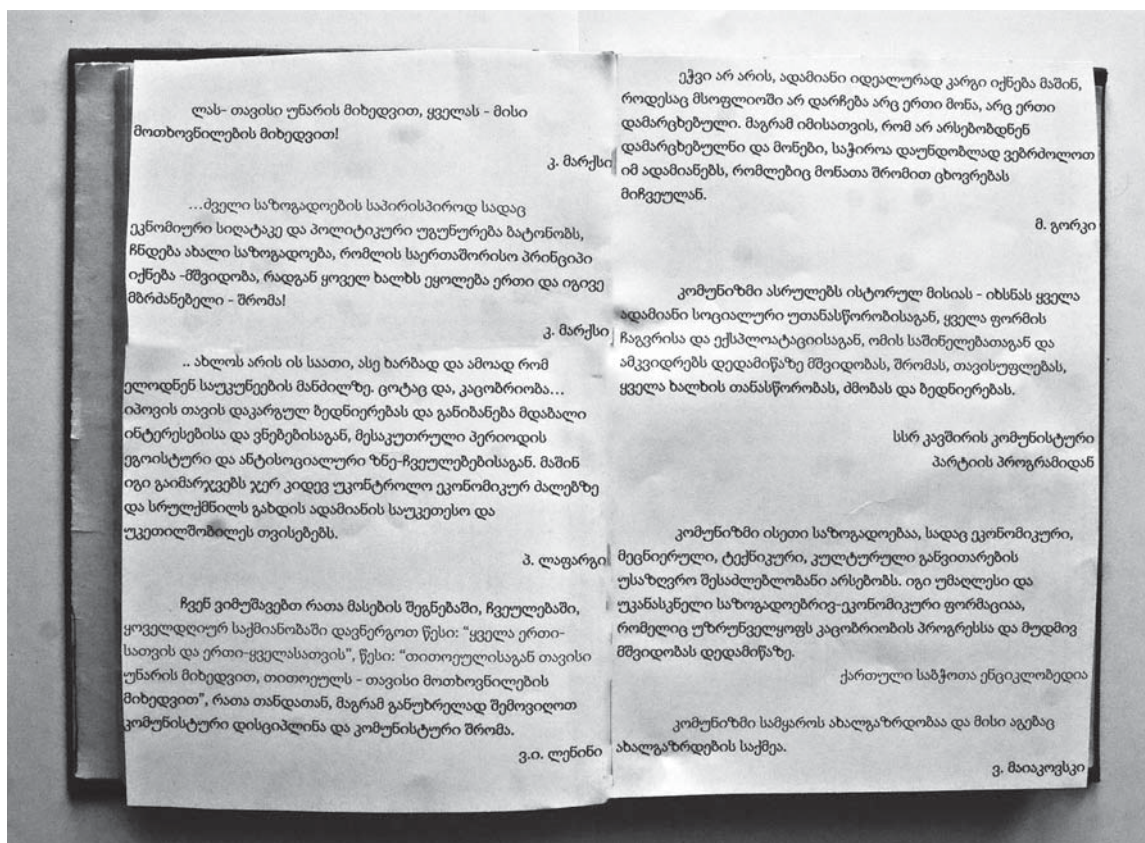 ლას- თავისი უნარის მიხედვით, ყველას - მისი
მოთხოვნილების მიხედვით!
კ. მარქსი
...ძველი საზოგადოების საპირისპიროდ სადაც
ეკნომიური სიღატაკე და პოლიტიკური უგუნურება ბატონობს,
ჩნდება ახალი საზოგადოება, რომლის საერთაშორისო პრინციპი
იქნება -მშვიდობა, რადგან ყოველ ხალხს ეყოლება ერთი და იგივე
მბრძანებელი - შრომა!
კ. მარქსი
.. ახლოს არის ის საათი, ასე ხარბად და ამოად რომ
ელოდნენ საუკუნეების მანძილზე. ცოტაც და, კაცობრიობა...
იპოვის თავის დაკარგულ ბედნიერებას და განიბანება მდაბალი
ინტერესებისა და ვნებებისაგან, მესაკუთრული პერიოდის
ეგოისტური და ანტისოციალური ზნე-ჩვეულებებისაგან. მაშინ
იგი გაიმარჯვებს ჯერ კიდევ უკონტროლო ეკონომიკურ ძალებზე
და სრულქმნილს გახდის ადამიანის საუკეთესო და
უკეთილშობილეს თვისებებს.
პ. ლაფარგი
ჩვენ ვიმუშავებთ რათა მასების შეგნებაში, ჩვეულებაში,
ყოველდღიურ საქმიანობაში დავნერგოთ წესი: “ყველა ერთი-
სათვის და ერთი-ყველასათვის”, წესი: “თითოეულისაგან თავისი
უნარის მიხედვით, თითოეულს - თავისი მოთხოვნილების
მიხედვით”, რათა თანდათან, მაგრამ განუხრელად შემოვიღოთ
კომუნისტური დისციპლინა და კომუნისტური შრომა.
ვ.ი. ლენინი
ეჭვი არ არის, ადამიანი იდეალურად კარგი იქნება მაშინ,
როდესაც მსოფლიოში არ დარჩება არც ერთი მონა, არც ერთი
დამარცხებული. მაგრამ იმისათვის, რომ არ არსებობდნენ
დამარცხებულნი და მონები, საჭიროა დაუნდობლად ვებრძოლოთ
იმ ადამიანებს, რომლებიც მონათა შრომით ცხოვრებას
მიჩვეულან.
მ. გორკი
კომუნიზმი ასრულებს ისტორულ მისიას - იხსნას ყველა
ადამიანი სოციალური უთანასწორობისაგან, ყველა ფორმის
ჩაგვრისა და ექსპლოატაციისაგან, ომის საშინელებათაგან და
ამკვიდრებს დედამიწაზე მშვიდობას, შრომას, თავისუფლებას,
ყველა ხალხის თანასწორობას, ძმობას და ბედნიერებას.
სსრ კავშირის კომუნისტური
პარტიის პროგრამიდან
კომუნიზმი ისეთი საზოგადოებაა, სადაც ეკონომიკური,
მეცნიერული, ტექნიკური, კულტურული განვითარების
უსაზღვრო შესაძლებლობანი არსებობს. იგი უმაღლესი და
უკანასკნელი საზოგადოებრივ-ეკონომიკური ფორმაციაა,
რომელიც უზრუნველყოფს კაცობრიობის პროგრესსა და მუდმივ
მშვიდობას დედამიწაზე.
ქართული საბჭოთა ენციკლობედია
კომუნიზმი სამყაროს ახალგაზრდობაა და მისი აგებაც
ახალგაზრდების საქმეა.
ვ. მაიაკოვსკი